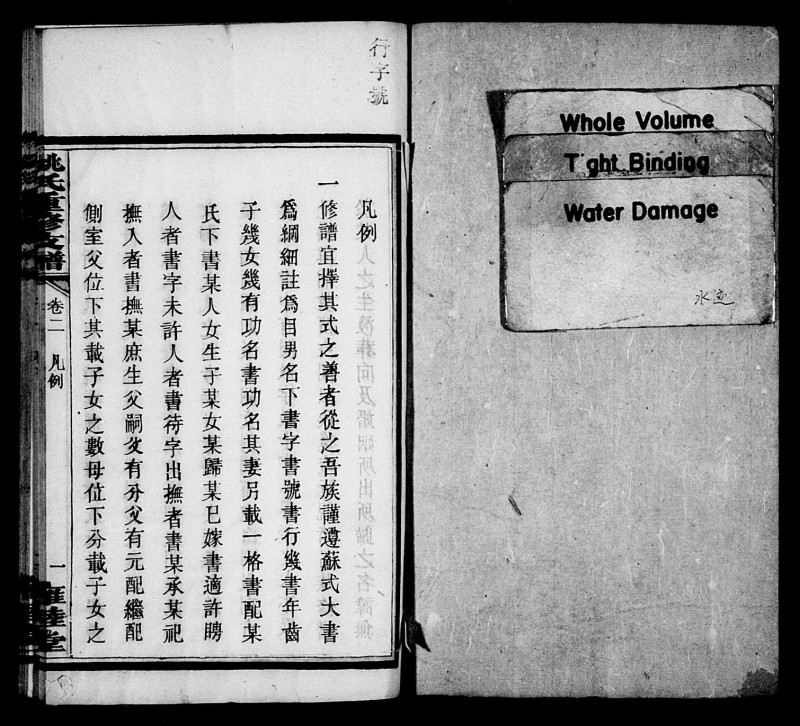 Whole Volume
Tight Binding
Water Damage
水漬
行字號
凡例
一修譜宜擇其式之善者從之吾族謹遵蘇式大書
爲綱細註爲目男名下書字書號書行幾書年齒
子幾女幾有功名書功名其妻另載一格書配某
氏下書某人女生子某女某歸某已嫁書適許聘
人者書字未許人者書待字出撫者書某承某祀
撫入者書撫某庶生父嗣父有分父有元配繼配
側室父位下其載子女之數母位下分載子女之
姚氏重修支譜
卷二
凡例
一
雍睦堂